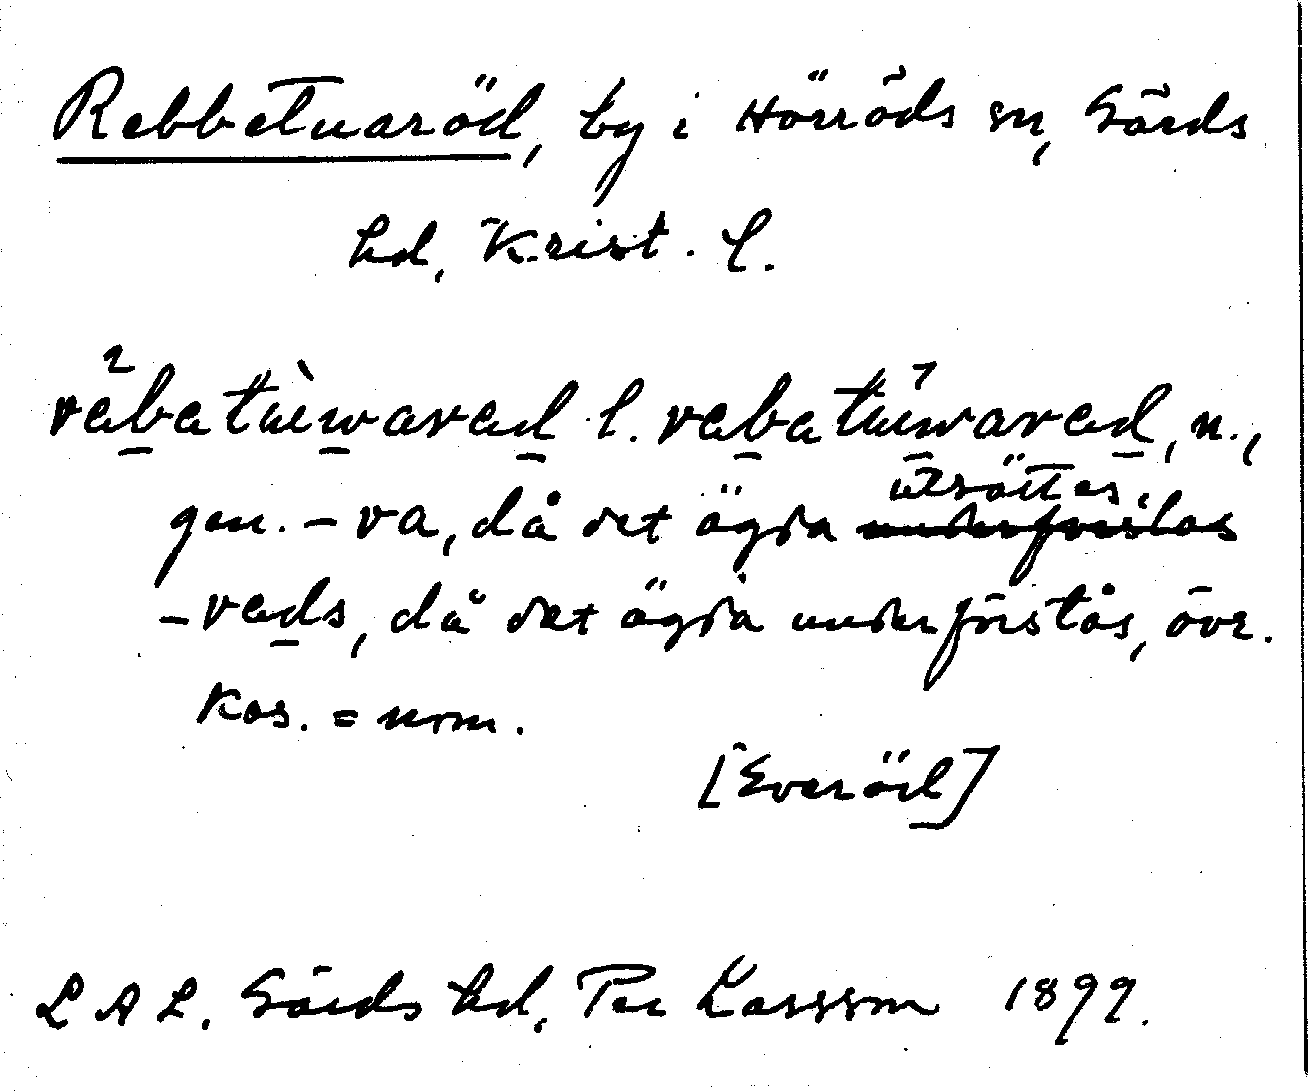 Rebbetuaröd, by i Hörröds sn, Gärds
hd, Krist. l.
rèbatùwarad l. rebatùwarad, n.,
gen. -va, då det ägda utsättes,
-rads, då det ägda underförstås, övr.
kas. = nom.
[Everöd]
LAL. Gärds hd. Per Larsson 1899.